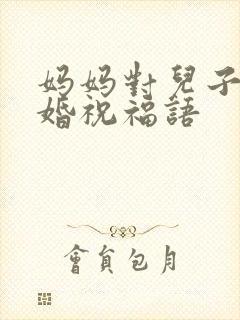 妈妈對兒子
婚祝福語
會員包月